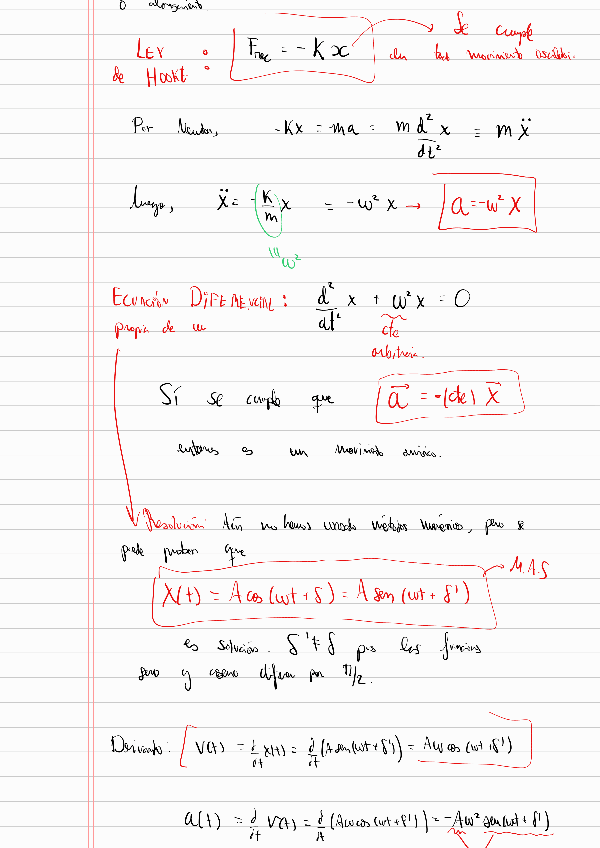 o alargamiento
LEY de HOOKE: F_rec = -Kx → Se cumple
en todo movimiento oscilat.
Por Newton, -Kx = ma = m d²/dt² x = m ẍ
luego, ẍ = -K/m x = -ω² x → a = -ω² x
ω²
ECUACIÓN DIFERENCIAL: d²/dt² x + ω² x = 0
propia de un
cte
arbitraria.
Sí se cumple que a⃗ = -(cte) x⃗
entonces es un movimiento armónico.
Resolución: Aún no hemos usado métodos numéricos, pero se
puede probar que
→ M.A.S
X(t) = A cos(ωt + δ) = A sen(ωt + δ')
es solución. δ' ≠ δ pues las funciones
seno y coseno difieren por π/2.
Derivando: v(t) = d/dt x(t) = d/dt (A sen(ωt + δ')) = Aω cos(ωt + δ')
a(t) = d/dt v(t) = d/dt (Aω cos(ωt + δ')) = -Aω² sen(ωt + δ')